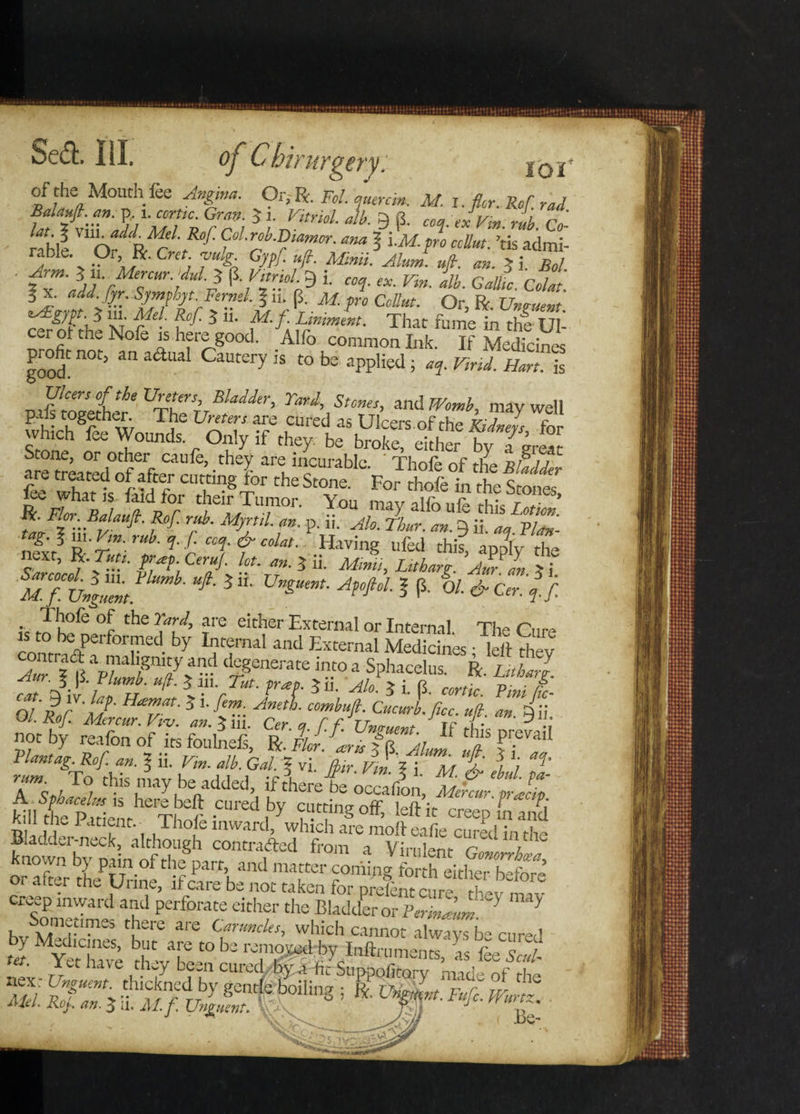 Sect. III. of Chirurgery. 101
of the Mouth ſee Angina. Or, ℞. Fol. quercin. M. 1. flor. Roſ. rad.
Balauſt. an. p. i. cortic. Gran. ʒ i. Vitriol. alb. ℈ β. coq. ex Vin. rub. Co-
lat. ℥ viii. add. Mel. Roſ. Col. rob. Diamor. ana ℥ i. M. pro collut. 'tis admi-
rable. Or, ℞. Cret. vulg. Gypſ. uſt. Minii. Alum. uſt. an. ʒ i. Bol.
Arm. ʒ ii. Mercur. dul. ʒ β. Vitriol. ℈ i. coq. ex. Vin. alb. Gallic. Colat.
℥ x. add. ſyr. Symphyt. Fernel. ℥ ii. β. M. pro Collut. Or, ℞. Unguent.
Ægypt. ʒ iii. Mel. Roſ. ʒ ii. M. f. Liniment. That fume in the Ul-
cer of the Noſe is here good. Alſo common Ink. If Medicines
profit not, an actual Cautery is to be applied; aq. Virid. Hart. is
good.
Ulcers of the Ureters, Bladder, Yard, Stones, and Womb, may well
paſs together. The Ureters are cured as Ulcers of the Kidneys, for
which ſee Wounds. Only if they be broke, either by a great
Stone, or other cauſe, they are incurable. Thoſe of the Bladder
are treated of after cutting for the Stone. For thoſe in the Stones,
ſee what is ſaid for their Tumor. You may alſo uſe this Lotion.
℞. Flor. Balauſt. Roſ. rub. Myrtil. an. p. ii. Alo. Thur. an. ℈ ii. aq. Plan-
tag. ℥ iii. Vin. rub. q. ſ. coq. & colat. Having uſed this, apply the
next, ℞. Tuti. præp. Ceruſ. lot. an. ʒ ii. Minii, Litharg. Aur. an. ʒ i.
Sarcocol. ʒ iii. Plumb. uſt. ʒ ii. Unguent. Apoſtol. ℥ β. Ol. & Cer. q. ſ.
M. f. Unguent.
Thoſe of the Yard, are either External or Internal. The Cure
is to be performed by Internal and External Medicines; leſt they
contract a malignity and degenerate into a Sphacelus. ℞. Litharg.
Aur. ℥ β. Plumb. uſt. ʒ iii. Tut. præp. ʒ ii. Alo. ʒ i. β. cortic. Pini ſic-
cat. ℈ iv. lap. Hæmat. ʒ i. ſem. Aneth. combuſt. Cucurb. ſicc. uſt. an. ℈ ii.
Ol. Roſ. Mercur. Viv. an. ʒ iii. Cer. q. ſ. f. Unguent. If this prevail
not by reaſon of its foulneſs, ℞. Flor. æris ʒ β. Alum. uſt. ʒ i. aq.
Plantag. Roſ. an. ℥ ii. Vin. alb. Gal. ℥ vi. ſpir. Vin. ℥ i. M. & ebul. pa-
rum. To this may be added, if there be occaſion, Mercur. præcip.
A Sphacelus is here beſt cured by cutting off, leſt it creep in and
kill the Patient. Thoſe inward, which are moſt eaſie cured in the
Bladder-neck, although contracted from a Virulent Gonorrhœa,
known by pain of the part, and matter coming forth either before
or after the Urine, if care be not taken for preſent cure, they may
creep inward and perforate either the Bladder or Perinæum.
Sometimes there are Caruncles, which cannot always be cured
by Medicines, but are to be removed by Inſtruments, as ſee Scul-
tet. Yet have they been cured by a fit Suppoſitory made of the
nex: Unguent. thickned by gentle boiling; ℞. Unguent. Fuſc. Wurtz.
Mel. Roſ. an. ʒ ii. M. f. Unguent.
Be-